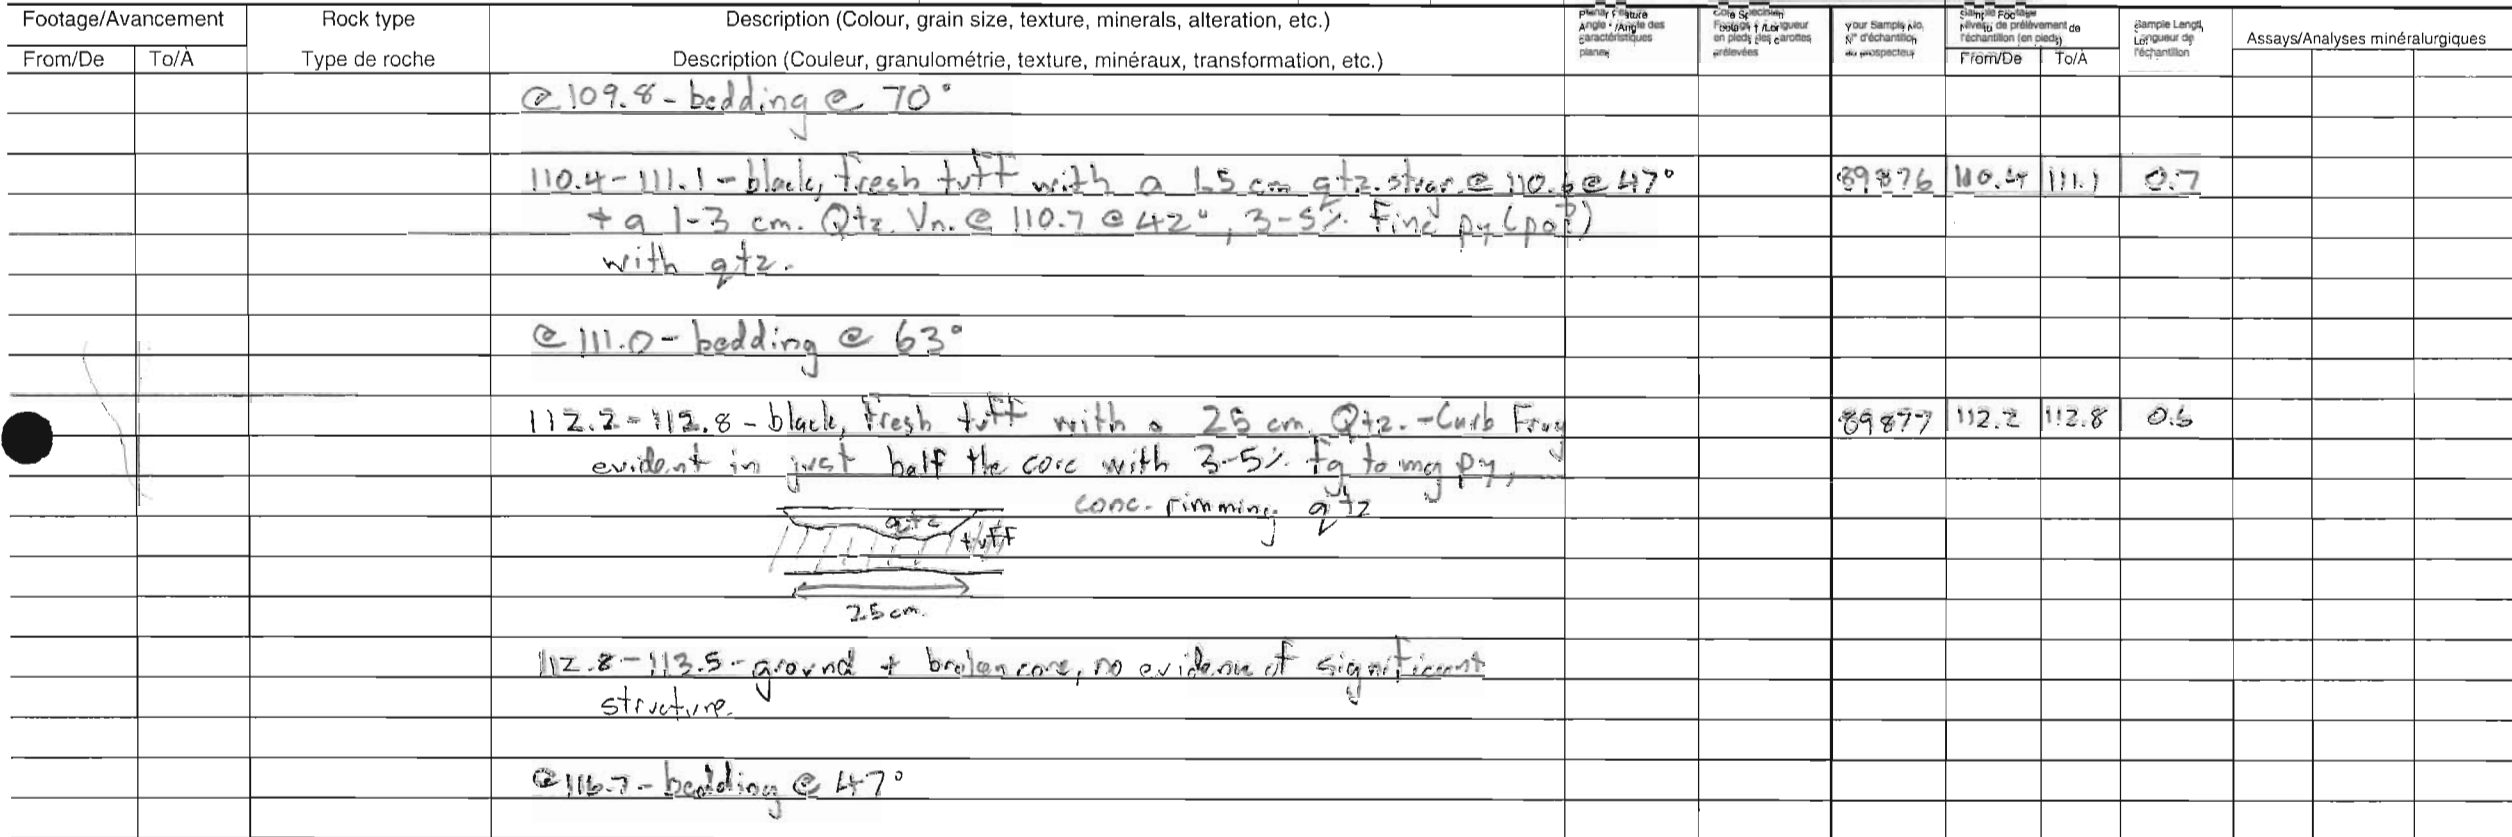 Footage/Avancement
Rock type
Description (Colour, grain size, texture, minerals, alteration, etc.)
From/De To/À
Type de roche
Description (Couleur, granulométrie, texture, minéraux, transformation, etc.)
Planar Feature
Angle • /Angle des
caractéristiques
planes
Core Specimen
Footage † /Longueur
en pieds des carottes
prélevées
Your Sample No.
N° d'échantillon
du prospecteur
Sample Footage
Niveau de prélèvement de
l'échantillon (en pieds)
From/De To/À
Sample Length
Longueur de
l'échantillon
Assays/Analyses minéralurgiques
@ 109.8 - bedding @ 70°
110.4-111.1 - black, fresh tuff with a 1.5 cm qtz. @ 110.6 @ 47° 89876 110.4 111.1 0.7
+ a 1-3 cm. Qtz. Vn. @ 110.7 @ 42°, 3-5% fine py (po?)
with qtz.
@ 111.0 - bedding @ 63°
112.2-112.8 - black, fresh tuff with a 25 cm Qtz.-Carb Frag 89877 112.2 112.8
evident in just half the core with 3-5% fg to mg py,
conc. rimming qtz
qtz
tuff
25 cm.
112.8-113.5 - ground + broken core, no evidence of significant
structure.
@ 116.7 - bedding @ 47°